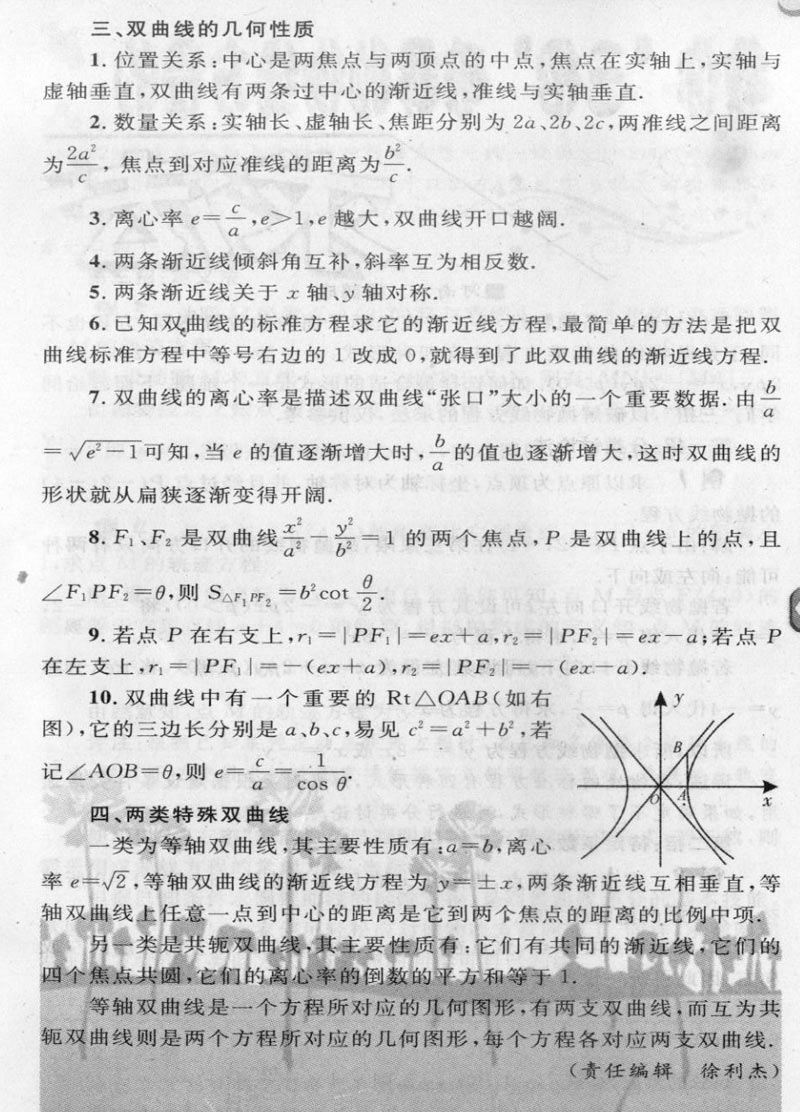 三、双曲线的几何性质
1. 位置关系:中心是两焦点与两顶点的中点,焦点在实轴上,实轴与
虚轴垂直,双曲线有两条过中心的渐近线,准线与实轴垂直.
2. 数量关系:实轴长、虚轴长、焦距分别为 2a、2b、2c,两准线之间距离
为 2a²/c , 焦点到对应准线的距离为 b²/c .
3. 离心率 e=c/a,e>1,e 越大,双曲线开口越阔.
4. 两条渐近线倾斜角互补,斜率互为相反数.
5. 两条渐近线关于 x 轴、y 轴对称.
6. 已知双曲线的标准方程求它的渐近线方程,最简单的方法是把双
曲线标准方程中等号右边的 1 改成 0,就得到了此双曲线的渐近线方程.
7. 双曲线的离心率是描述双曲线“张口”大小的一个重要数据. 由 b/a
=√(e²−1) 可知,当 e 的值逐渐增大时, b/a 的值也逐渐增大,这时双曲线的
形状就从扁狭逐渐变得开阔.
8. F₁、F₂ 是双曲线 x²/a² − y²/b² =1 的两个焦点,P 是双曲线上的点,且
∠F₁PF₂=θ,则 S△F₁PF₂ =b²cot θ/2.
9. 若点 P 在右支上,r₁=|PF₁|=ex+a,r₂=|PF₂|=ex−a;若点 P
在左支上,r₁=|PF₁|=−(ex+a),r₂=|PF₂|=−(ex−a).
10. 双曲线中有一个重要的 Rt△OAB(如右
图),它的三边长分别是 a、b、c,易见 c²=a²+b²,若
记∠AOB=θ,则 e=c/a=1/cos θ.
y
B
O
A
x
四、两类特殊双曲线
一类为等轴双曲线,其主要性质有:a=b,离心
率 e=√2,等轴双曲线的渐近线方程为 y=±x,两条渐近线互相垂直,等
轴双曲线上任意一点到中心的距离是它到两个焦点的距离的比例中项.
另一类是共轭双曲线,其主要性质有:它们有共同的渐近线,它们的
四个焦点共圆,它们的离心率的倒数的平方和等于 1.
等轴双曲线是一个方程所对应的几何图形,有两支双曲线,而互为共
轭双曲线则是两个方程所对应的几何图形,每个方程各对应两支双曲线.
(责任编辑 徐利杰)